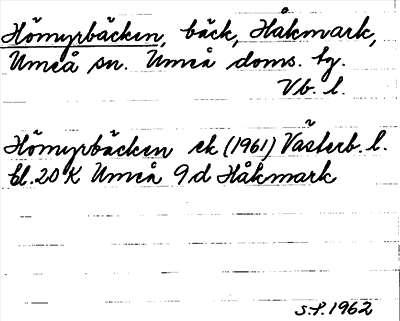 Hömyrbäcken, bäck, Håkmark,
Umeå sn. Umeå doms. tg.
Vb. l.
Hömyrbäcken ek (1961) Västerb. l.
bl. 20 K Umeå 9 d Håkmark
s.f. 1962